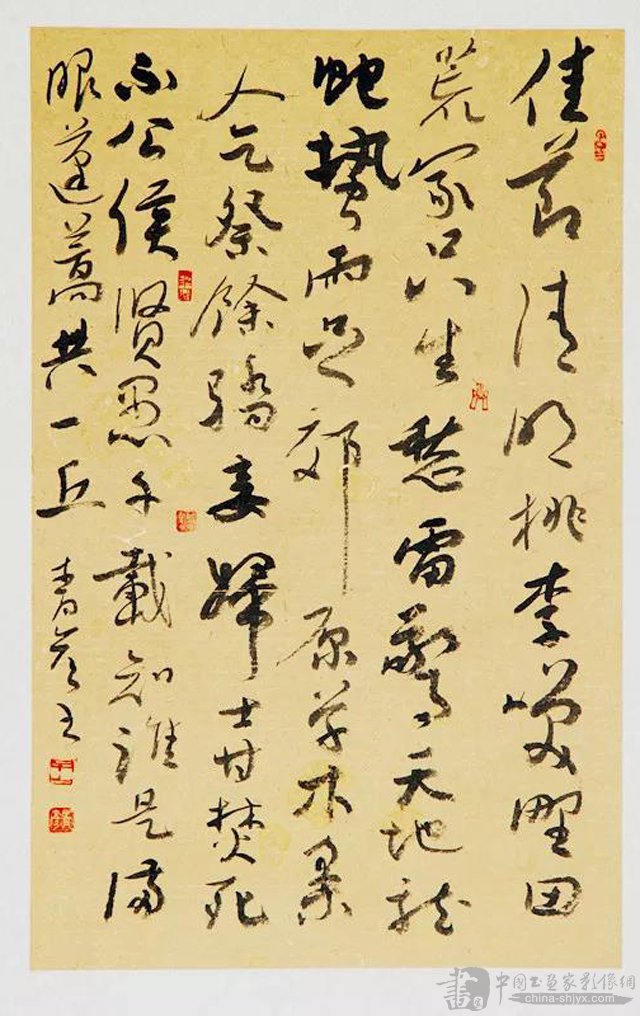 佳节清明桃李笑野田
荒冢只生愁雷惊天地龙
蛇蛰雨足郊原草木柔
人乞祭余骄妾妇士甘焚死
不公侯贤愚千载知谁是满
眼蓬蒿共一丘
中国书画家影像網
china-shjyx.com